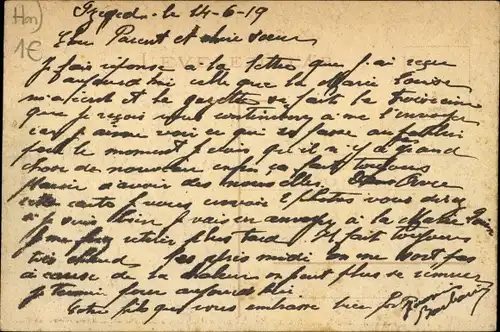 Hon)
1€
Szeged le 14-6-19
Cher Parent et chère sœur
Je fais réponse a la lettre que j'ai reçu
aujourd'hui celle que la Marie Louise
m'a écrit et la gazette ça fait le troisième
que je reçois vous continuerez à me l'envoyer
car j'aime voir ce qui se passe au
pour le moment je vois qu'il n'y a grand
chose de nouveau enfin ça fait toujours
plaisir d'avoir des nouvelles. Avec
cette carte je vous envoie 2 photos vous
je vais en envoyer a la Marie
plus tard. Il fait toujours
très chaud. après midi on ne sort pas
à cause de la chaleur on peut plus se remuer
je termine pour aujourd'hui
Votre fils qui vous embrasse bien fort